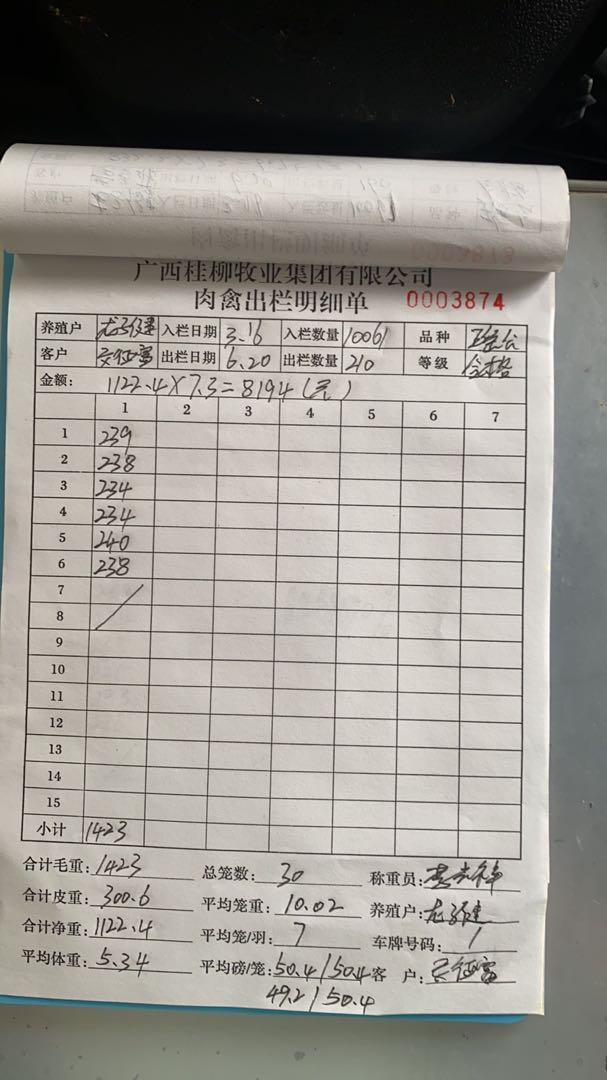 广西桂柳牧业集团有限公司
肉禽出栏明细单 0003874
养殖户 入栏日期 3.16 入栏数量 10061 品种
客户 出栏日期 6.20 出栏数量 210 等级 合格
金额: 1122.4×7.3=8194(元)
1 2 3 4 5 6 7
1 239
2 238
3 234
4 234
5 240
6 238
7
8
9
10
11
12
13
14
15
小计 1423
合计毛重: 1423 总笼数: 30 称重员:
合计皮重: 300.6 平均笼重: 10.02 养殖户:
合计净重: 1122.4 平均笼/羽: 7 车牌号码: /
平均体重: 5.34 平均磅/笼: 50.4/50.4 客 户:
49.2/50.4